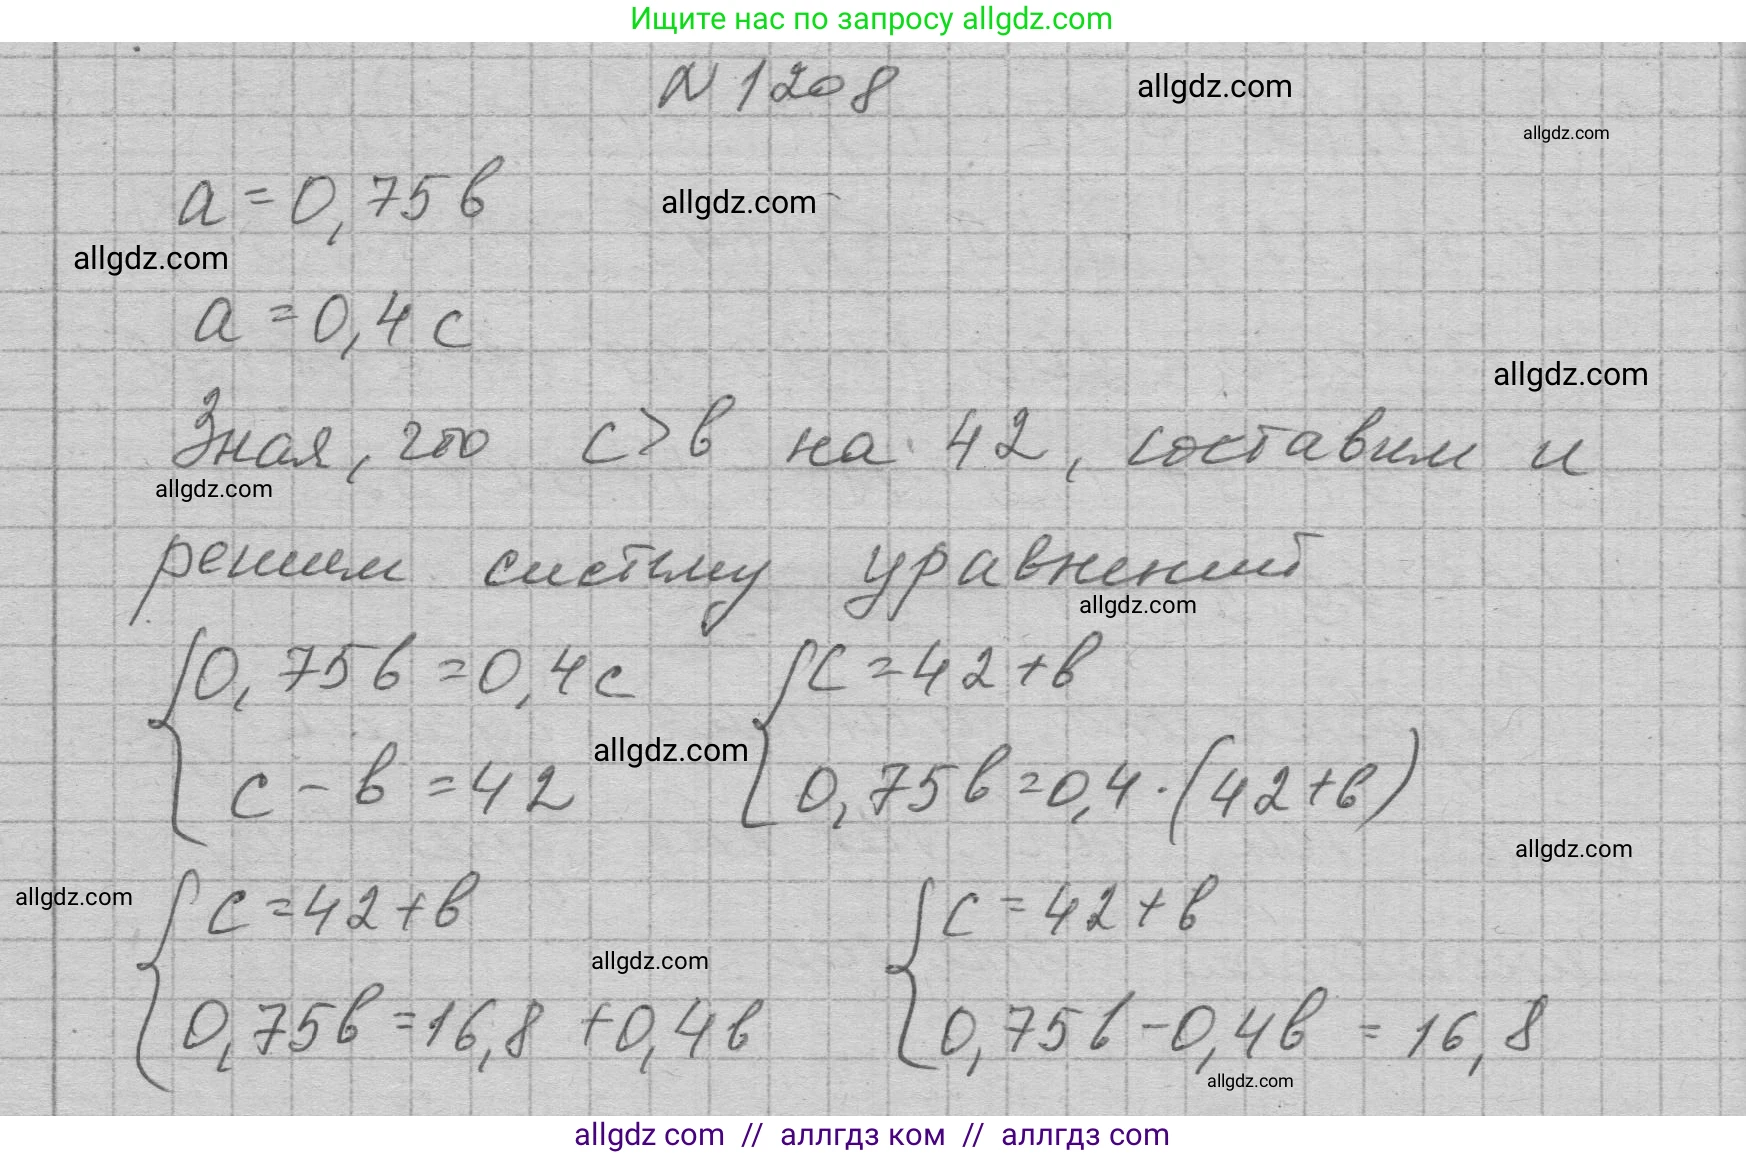 Ищите нас по запросу allgdz.com
N 1208
allgdz.com
allgdz.com
a = 0,75 в
allgdz.com
allgdz.com
a = 0,4 с
allgdz.com
Зная, что с > в на 42, составим и
allgdz.com
решим систему уравнений
allgdz.com
0,75в = 0,4с с = 42 + в
allgdz.com
с - в = 42 0,75в = 0,4 · (42 + в)
allgdz.com
allgdz.com
с = 42 + в с = 42 + в
allgdz.com
0,75в = 16,8 + 0,4в 0,75в - 0,4в = 16,8
allgdz.com
allgdz com // аллгдз ком // аллгдз com